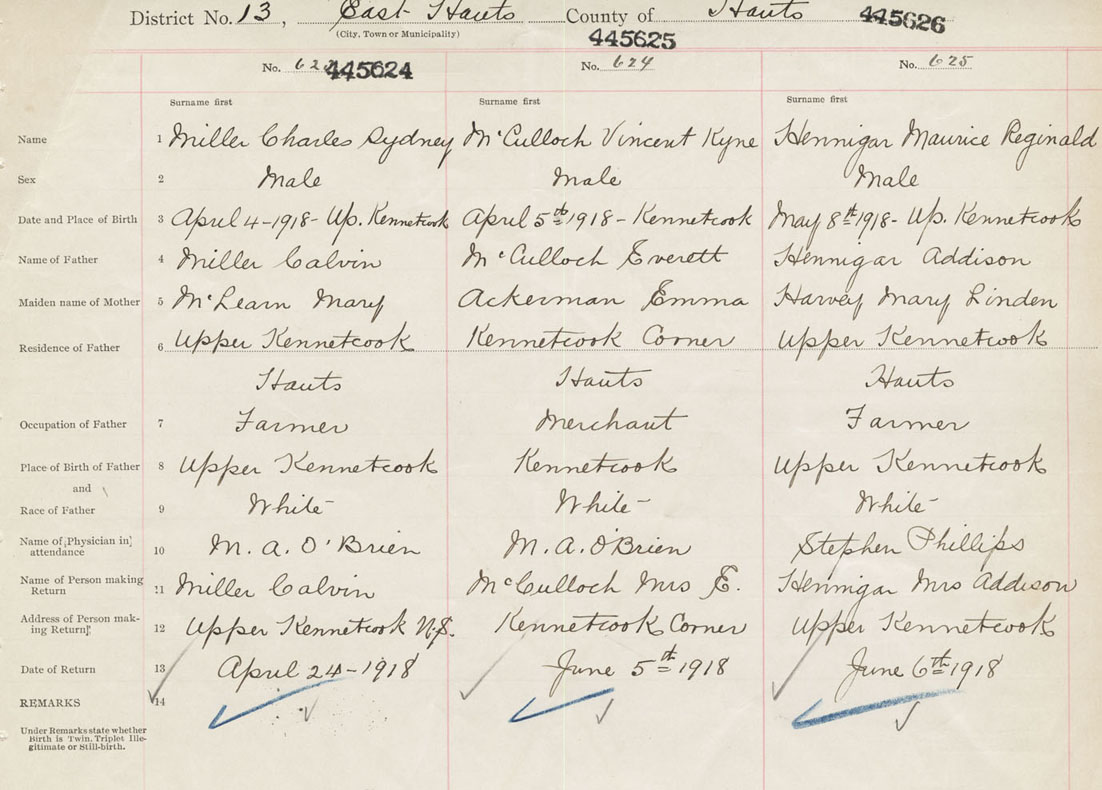 District No. 13, East Hants County of Hants 445626
(City, Town or Municipality) 445625
No. 445624 No. 624 No. 625
Surname first Surname first Surname first
Name 1 Miller Charles Sydney McCulloch Vincent Kyne Hennigar Maurice Reginald
Sex 2 Male Male Male
Date and Place of Birth 3 April 4-1918- Up. Kennetcook April 5th 1918- Kennetcook May 8th 1918- Up. Kennetcook
Name of Father 4 Miller Calvin McCulloch Everett Hennigar Addison
Maiden name of Mother 5 McLearn Mary Ackerman Emma Harvey Mary Linden
Residence of Father 6 Upper Kennetcook Kennetcook Corner Upper Kennetcook
Hants Hants Hants
Occupation of Father 7 Farmer Merchant Farmer
Place of Birth of Father 8 Upper Kennetcook Kennetcook Upper Kennetcook
and
Race of Father 9 White White White
Name of Physician in attendance 10 M. A. O'Brien M. A. O'Brien Stephen Phillips
Name of Person making Return 11 Miller Calvin McCulloch Mrs E. Hennigar Mrs Addison
Address of Person making Return 12 Upper Kennetcook N.S. Kennetcook Corner Upper Kennetcook
Date of Return 13 April 24-1918 June 5th 1918 June 6th 1918
REMARKS 14
Under Remarks state whether
Birth is Twin, Triplet Ille-
gitimate or Still-birth.